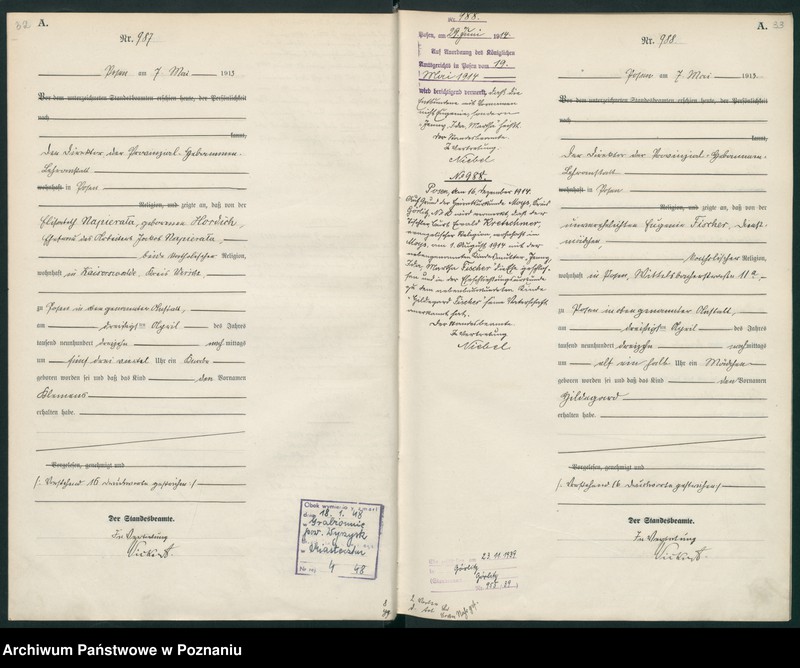 32 A.
Nr. 987
Posen am 7 Mai 1913
Vor dem unterzeichneten Standesbeamten erschien heute, der Persönlichkeit
nach
kannt,
Der Direktor der Provinzial-Hebammen-
Lehranstalt
wohnhaft in Posen
Religion, und zeigte an, daß von der
Elisabeth Napierala, geborenen
Ehefrau des Arbeiters Jakob Napierala
beide katholischer Religion,
wohnhaft in Kreis
zu Posen in obengenannter Anstalt,
am dreißigsten April des Jahres
tausend neunhundert dreizehn nachmittags
um fünf drei viertel Uhr ein Knabe
geboren worden sei und daß das Kind den Vornamen
Klemens
erhalten habe.
Vorgelesen, genehmigt und
/: Vorstehend 16 Druckworte gestrichen :/
Der Standesbeamte.
In Vertretung
18. 1. 48
pow. Wyrzysk
4 48
Nr. 988.
Posen, am 29. Juni 1914
Auf Anordnung des Königlichen
Amtsgerichts in Posen vom 19.
Mai 1914
wird berichtigend vermerkt, daß die
nicht Eugenie, sondern
Jenny, Ida, Martha heißt.
Der Standesbeamte.
In Vertretung.
Niebel
No 988.
Posen, am 16. Dezember 1914.
Auf Grund der Heiratsurkunde Moys, Kreis
Görlitz, wird vermerkt, daß der
Tischler, Kurt Ewald Kretschmer,
evangelischer Religion, wohnhaft in
Moys, am 1. August 1914 mit der
nebengenannten Kindesmutter, Jenny,
Ida, Martha Fischer die Ehe geschlos-
sen und in der Eheschließungsurkunde
zu dem nebenbeurkundeten Kinde
Hildegard Fischer seine Vaterschaft
anerkannt hat.
Der Standesbeamte
In Vertretung
Niebel
23.11.1939
Görlitz
Görlitz
A. 33
Nr. 988
Posen am 7 Mai 1913
Vor dem unterzeichneten Standesbeamten erschien heute, der Persönlichkeit
nach
kannt,
Der Direktor der Provinzial-Hebammen-
Lehranstalt
wohnhaft in Posen
Religion, und zeigte an, daß von der
unverehelichten Eugenie Fischer, Dienst-
mädchen,
katholischer Religion,
wohnhaft in Posen, Wittelsbacherstrasse 11a,
zu Posen in obengenannter Anstalt,
am dreißigsten April des Jahres
tausend neunhundert dreizehn nachmittags
um elf ein halb Uhr ein Mädchen
geboren worden sei und daß das Kind den Vornamen
Hildegard
erhalten habe.
Vorgelesen, genehmigt und
/: Vorstehend 16 Druckworte gestrichen :/
Der Standesbeamte.
In Vertretung
Archiwum Państwowe w Poznaniu